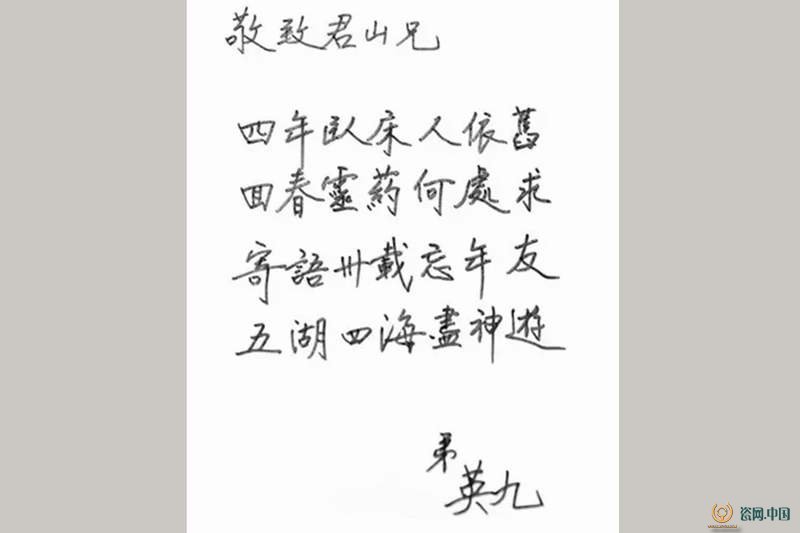 敬致君山兄
四年臥床人依舊
回春靈藥何處求
寄語卅載忘年友
五湖四海盡神遊
弟
英九
瓷网.中国